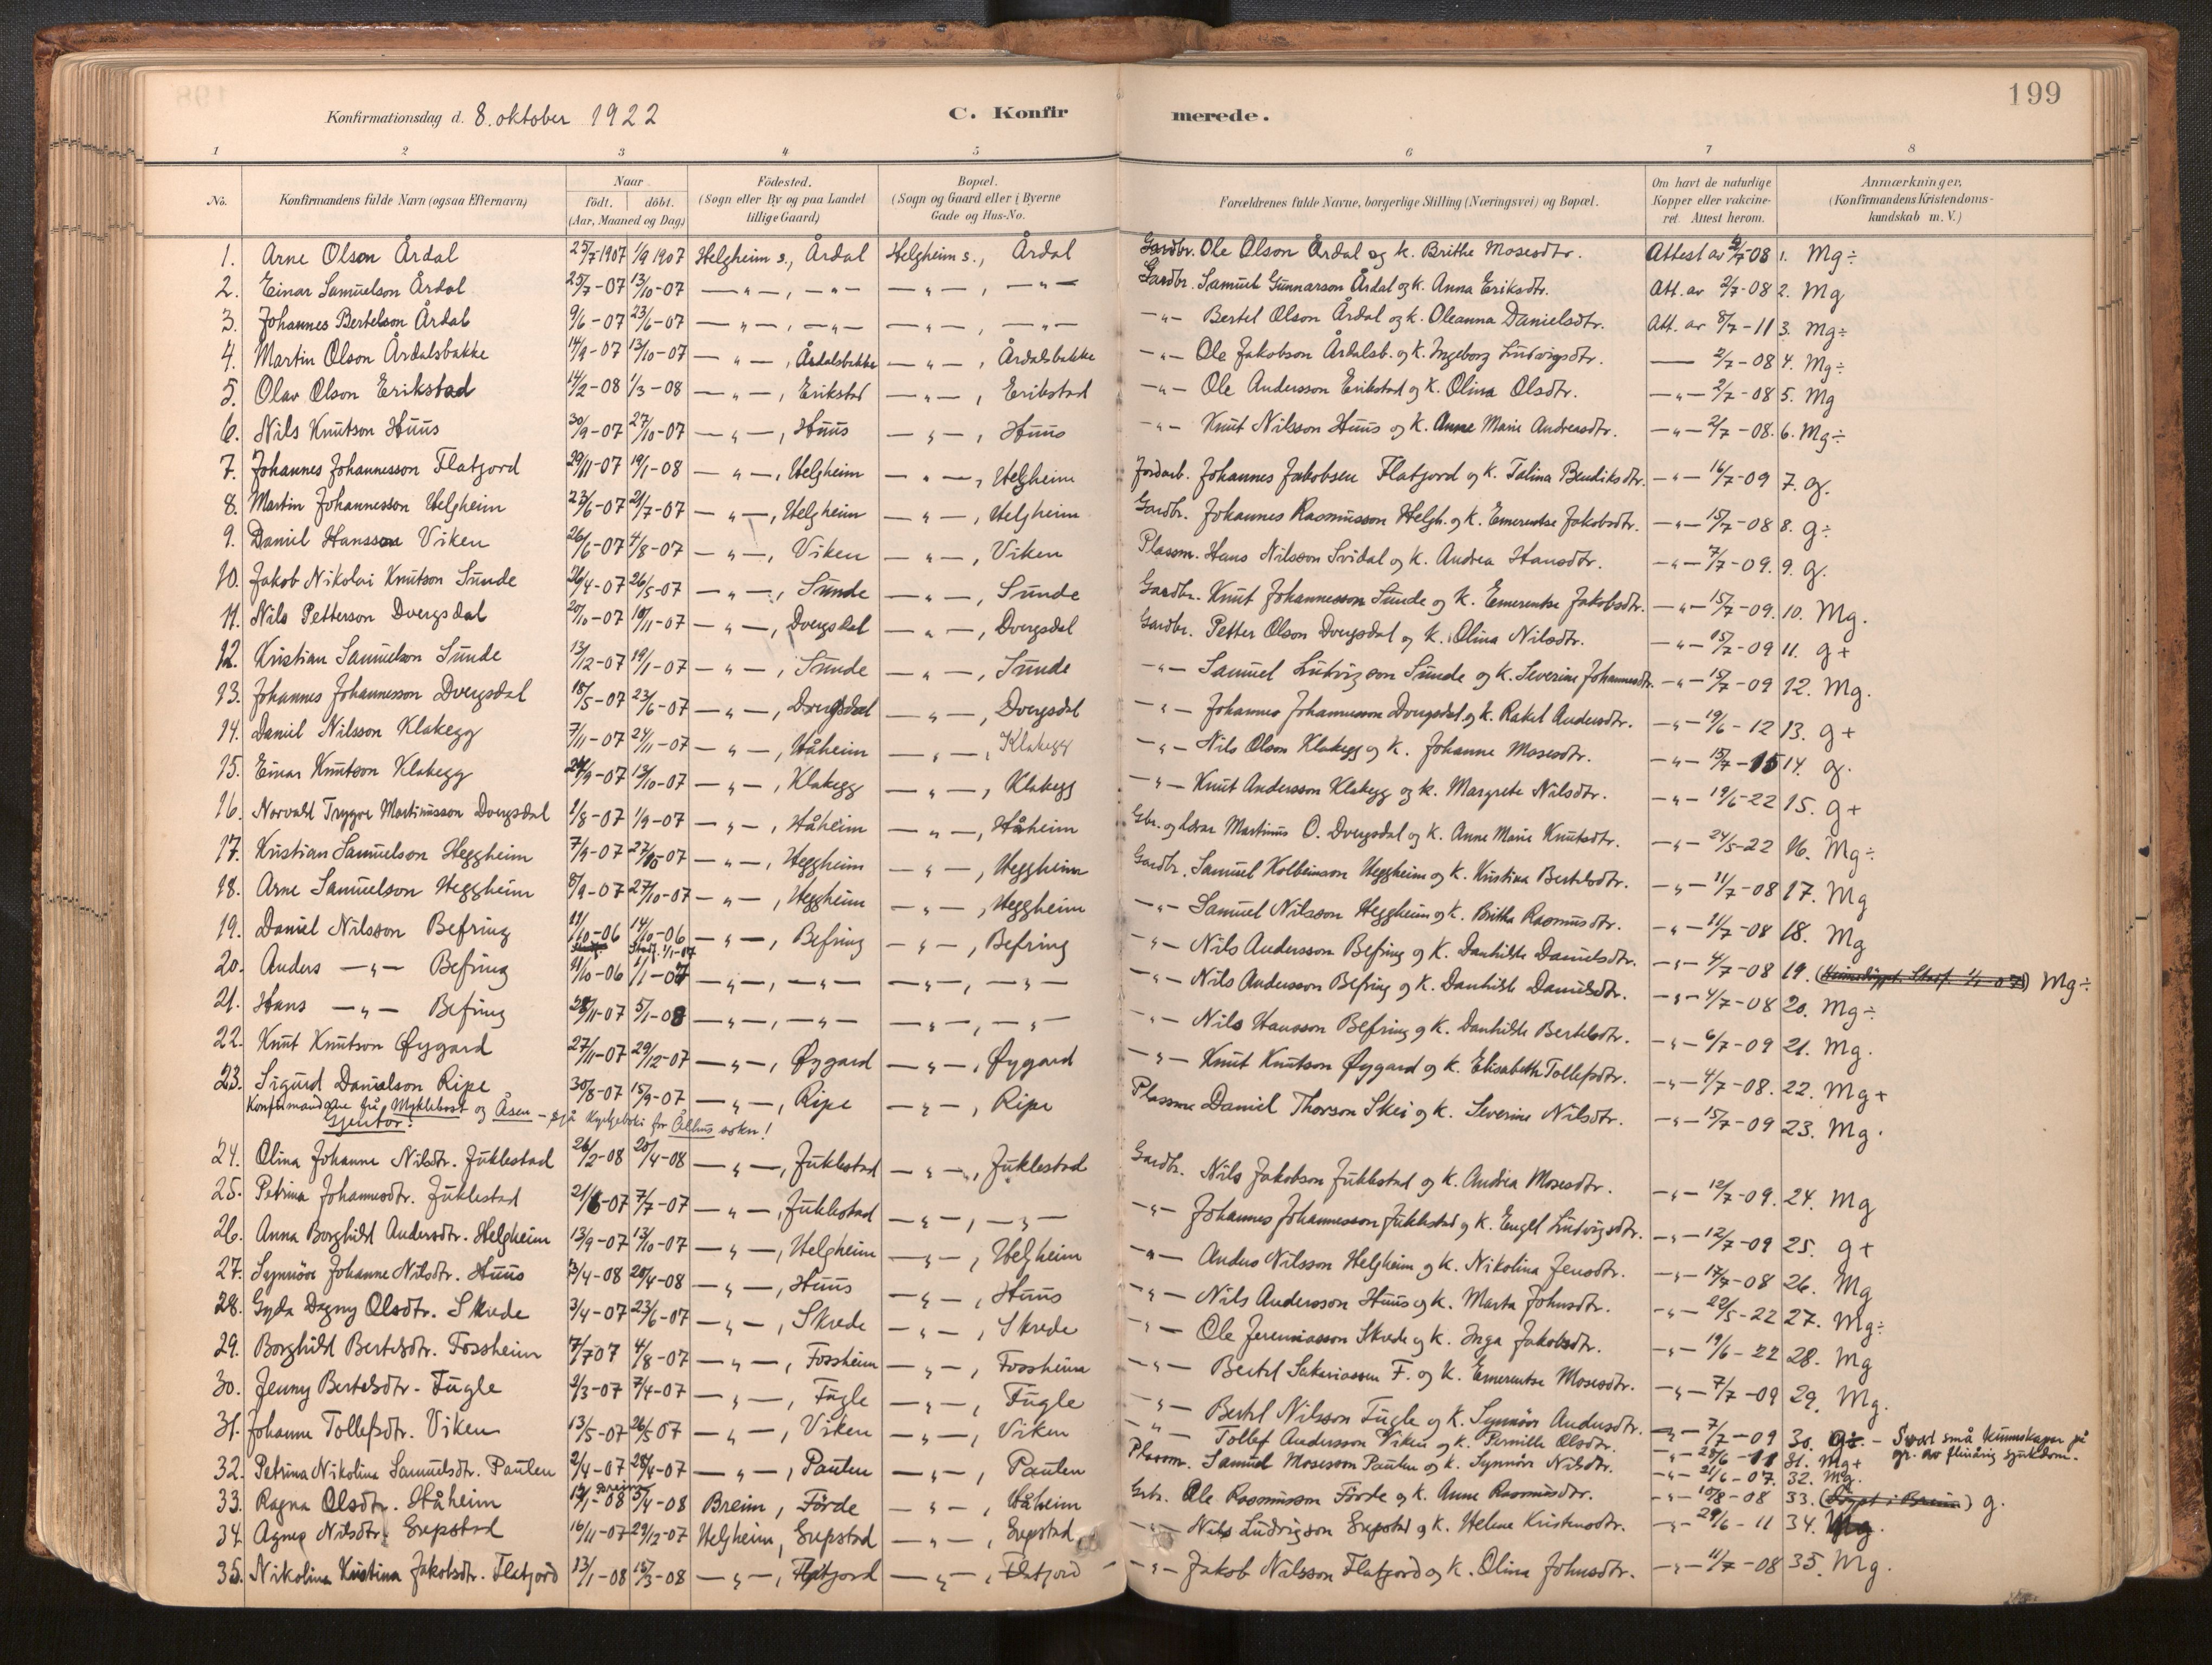 199
Konfirmationsdag d. 8. oktober 1922 C. Konfirmerede.
1 2 3 4 5 6 7 8
No. Konfirmandens fulde Navn (ogsaa Efternavn) Naar født. døbt. (Aar, Maaned og Dag) Fødested. (Sogn eller By og paa Landet tillige Gaard) Bopæl. (Sogn og Gaard eller i Byerne Gade og Hus-No. Forældrenes fulde Navne, borgerlige Stilling (Næringsvei) og Bopæl. Om havt de naturlige Kopper eller vakcineret. Attest herom. Anmærkninger, (Konfirmandens Kristendomskundskab m. V.)
1. Arne Olson Årdal 25/7 1907 1/9 1907 Helgheim s., Årdal Helgheim s., Årdal Gardbr. Ole Olson Årdal og k. Brithe Mosesdtr. Attest av 2/7-08 1. Mg÷
2. Einar Samuelson Årdal 25/7-07 13/10-07 —"—, —"— —"—, —"— Gardbr. Samuel Gunnarson Årdal og k. Anna Eriksdtr. Att. av 2/7-08 2. Mg
3. Johannes Bertelson Årdal 9/6-07 23/6-07 —"—, —"— —"—, —"— —"— Bertel Olson Årdal og k. Oleanna Danielsdtr. Att. av 8/7-11 3. Mg÷
4. Martin Olson Årdalsbakke 14/9-07 13/10-07 —"—, Årdalsbakke —"—, Årdalsbakke —"— Ole Jakobson Årdalsb. og k. Ingeborg Ludvigsdtr. — 2/7-08 4. Mg÷
5. Olav Olson Erikstad 14/2-08 1/3-08 —"—, Erikstad —"—, Erikstad —"— Ole Andersson Erikstad og k. Olina Olsdtr. —"— 2/7-08 5. Mg
6. Nils Knutson Huus 30/9-07 27/10-07 —"—, Huus —"—, Huus —"— Knut Nilsson Huus og k. Anne Marie Andreasdtr. —"— 2/7-08. 6. Mg÷
7. Johannes Johannesson Flatjord 29/11-07 19/1-08 —"—, Helgheim —"—, Helgheim Jordarb. Johannes Jakobsen Flatjord og k. Talina Bendiksdtr. —"— 16/7-09 7. g.
8. Martin Johannesson Helgheim 23/6-07 21/7-07 —"—, Helgheim —"—, Helgheim Gardbr. Johannes Rasmusson Helgh. og k. Emerentse Jakobsdtr. —"— 15/7-08 8. g÷
9. Daniel Hansson Viken 26/6-07 4/8-07 —"—, Viken —"—, Viken Plassm. Hans Nilsson Svidal og k. Andrea Hansdtr. —"— 7/7-09. 9. g.
10. Jakob Nikolai Knutson Sunde 26/4-07 26/5-07 —"—, Sunde —"—, Sunde Gardbr. Knut Johannesson Sunde og k. Emerentse Jakobsdtr. —"— 15/7-09. 10. Mg.
11. Nils Petterson Dvergsdal 20/10-07 10/11-07 —"—, Dvergsdal —"—, Dvergsdal Gardbr. Petter Olson Dvergsdal og k. Olina Nilsdtr. —"— 15/7-09 11. g+
12. Kristian Samuelson Sunde 13/12-07 19/1-07 —"—, Sunde —"—, Sunde —"— Samuel Ludvigson Sunde og k. Severine Johannesdtr. —"— 15/7-09 12. Mg.
13. Johannes Johannesson Dvergsdal 18/5-07 23/6-07 —"—, Dvergsdal —"—, Dvergsdal —"— Johannes Johannesson Dvergsdal og k. Rakel Andersdtr. —"— 19/6-12 13. g+
14. Daniel Nilsson Klakegg 7/11-07 24/11-07 —"—, Håheim —"—, Klakegg —"— Nils Olson Klakegg og k. Johanne Mosesdtr. —"— 15/7-15 14. g.
15. Einar Knutson Klakegg 24/9-07 13/10-07 —"—, Klakegg —"—, Klakegg —"— Knut Andersson Klakegg og k. Margrete Nilsdtr. —"— 19/6-22 15. g+
16. Norvald Trygve Martinusson Dvergsdal 1/8-07 1/9-07 —"—, Håheim —"—, Håheim Gbr. og lærar Martinus O. Dvergsdal og k. Anne Marie Knutsdtr. —"— 24/5-22 16. Mg÷
17. Kristian Samuelson Heggheim 7/9-07 27/10-07 —"—, Heggheim —"—, Heggheim Gardbr. Samuel Kolbeinson Heggheim og k. Kristina Bertelsdtr. —"— 11/7-08 17. Mg
18. Arne Samuelson Heggheim 8/9-07 27/10-07 —"—, Heggheim —"—, Heggheim —"— Samuel Nilsson Heggheim og k. Britha Rasmusdtr. —"— 11/7-08 18. Mg
19. Daniel Nilsson Befring 11/10-06 14/10-06 Stadf. 1/1-07 —"—, Befring —"—, Befring —"— Nils Andersson Befring og k. Danhilde Danielsdtr. —"— 4/7-08 19. (Heimedøypt. Stadf. 1/1-07) Mg÷
20. Anders —"— Befring 11/10-06 1/1-07 —"—, —"— —"—, —"— —"— Nils Andersson Befring og k. Danhilde Danielsdtr. —"— 4/7-08 20. Mg÷
21. Hans —"— Befring 28/11-07 5/1-08 —"—, —"— —"—, —"— —"— Nils Hansson Befring og k. Danhilde Bertelsdtr. —"— 6/7-09 21. Mg.
22. Knut Knutson Øygard 27/11-07 29/12-07 —"—, Øygard —"—, Øygard —"— Knut Knutson Øygard og k. Elisabeth Tollefsdtr. —"— 4/7-08. 22. Mg+
23. Sigurd Danielson Ripe 30/8-07 15/9-07 —"—, Ripe —"—, Ripe Plassm Daniel Thorson Skei og k. Severine Nilsdtr. —"— 15/7-09 23. Mg.
Konfirmandane frå Myklebost og Åsen — sjå Kyrkjeboki for Ålhus sokn!
Gjentor:
24. Olina Johanne Nilsdtr. Juklestad 26/2-08 20/4-08 —"—, Juklestad —"—, Juklestad Gardbr. Nils Jakobson Juklestad og k. Andrea Mosesdtr. —"— 12/7-09. 24. Mg
25. Petrina Johannesdtr. Juklestad 21/6-07 7/7-07 —"—, Juklestad —"—, —"— —"— Johannes Johannesson Juklestad og k. Engel Ludvigsdtr. —"— 12/7-09 25. g+
26. Anna Borghild Andersdtr. Helgheim 13/9-07 13/10-07 —"—, Helgheim —"—, Helgheim —"— Anders Nilsson Helgheim og k. Nikolina Jensdtr. —"— 17/7-08 26. Mg
27. Synnöve Johanne Nilsdtr. Huus 3/4-08 20/4-08 —"—, Huus —"—, Huus —"— Nils Andersson Huus og k. Marta Johnsdtr. —"— 22/5-22 27. Mg÷
28. Gyda Dagny Olsdtr. Skrede 3/4-07 23/6-07 —"—, Skrede —"—, Skrede —"— Ole Jeremiasson Skrede og k. Inga Jakobsdtr. —"— 19/6-22 28. Mg
29. Borghild Bertelsdtr. Fossheim 7/7 07 4/8-07 —"—, Fossheim —"—, Fossheim —"— Bertel Sakariassen F. og k. Emerentse Mosesdtr. —"— 7/7-09 29. Mg.
30. Jenny Bertelsdtr. Fugle 2/3-07 7/4-07 —"—, Fugle —"—, Fugle —"— Bertel Nilsson Fugle og k. Synnöve Andersdtr. —"— 7/7-09 30. g÷ - Svært små kunnskapar på gr. av fleirårig sjukdom.
31. Johanne Tollefsdtr. Viken 13/5-07 26/5 07 —"—, Viken —"—, Viken —"— Tollef Andersson Viken og k. Pernille Olsdtr. —"— 28/6-11 31. Mg+
32. Petrina Nikolina Samuelsdtr. Paulen 2/4-07 28/4-07 —"—, Paulen —"—, Paulen Plassm. Samuel Moseson Paulen og k. Synnöve Nilsdtr. —"— 21/6-07. 32. Mg.
33. Ragna Olsdtr. Håheim 12/1-08 Breim 5/4-08 Breim, Förde —"—, Håheim Gbr. Ole Rasmusson Förde og k. Anne Rasmusdtr. —"— 10/8-08 33. (Døypt i Breim) g.
34. Agnes Nilsdtr. Grepstad 16/11-07 29/12-07 Helgheim, Grepstad —"—, Grepstad —"— Nils Ludvigson Grepstad og k. Helene Kristensdtr. —"— 29/6-11 34. Mg.
35. Nikolina Kristina Jakobsdtr. Flatjord 13/1-08 15/3-08 —"—, Flatjord —"—, Flatjord —"— Jakob Nilsson Flatjord og k. Olina Johnsdtr. —"— 11/7-08 35. Mg.